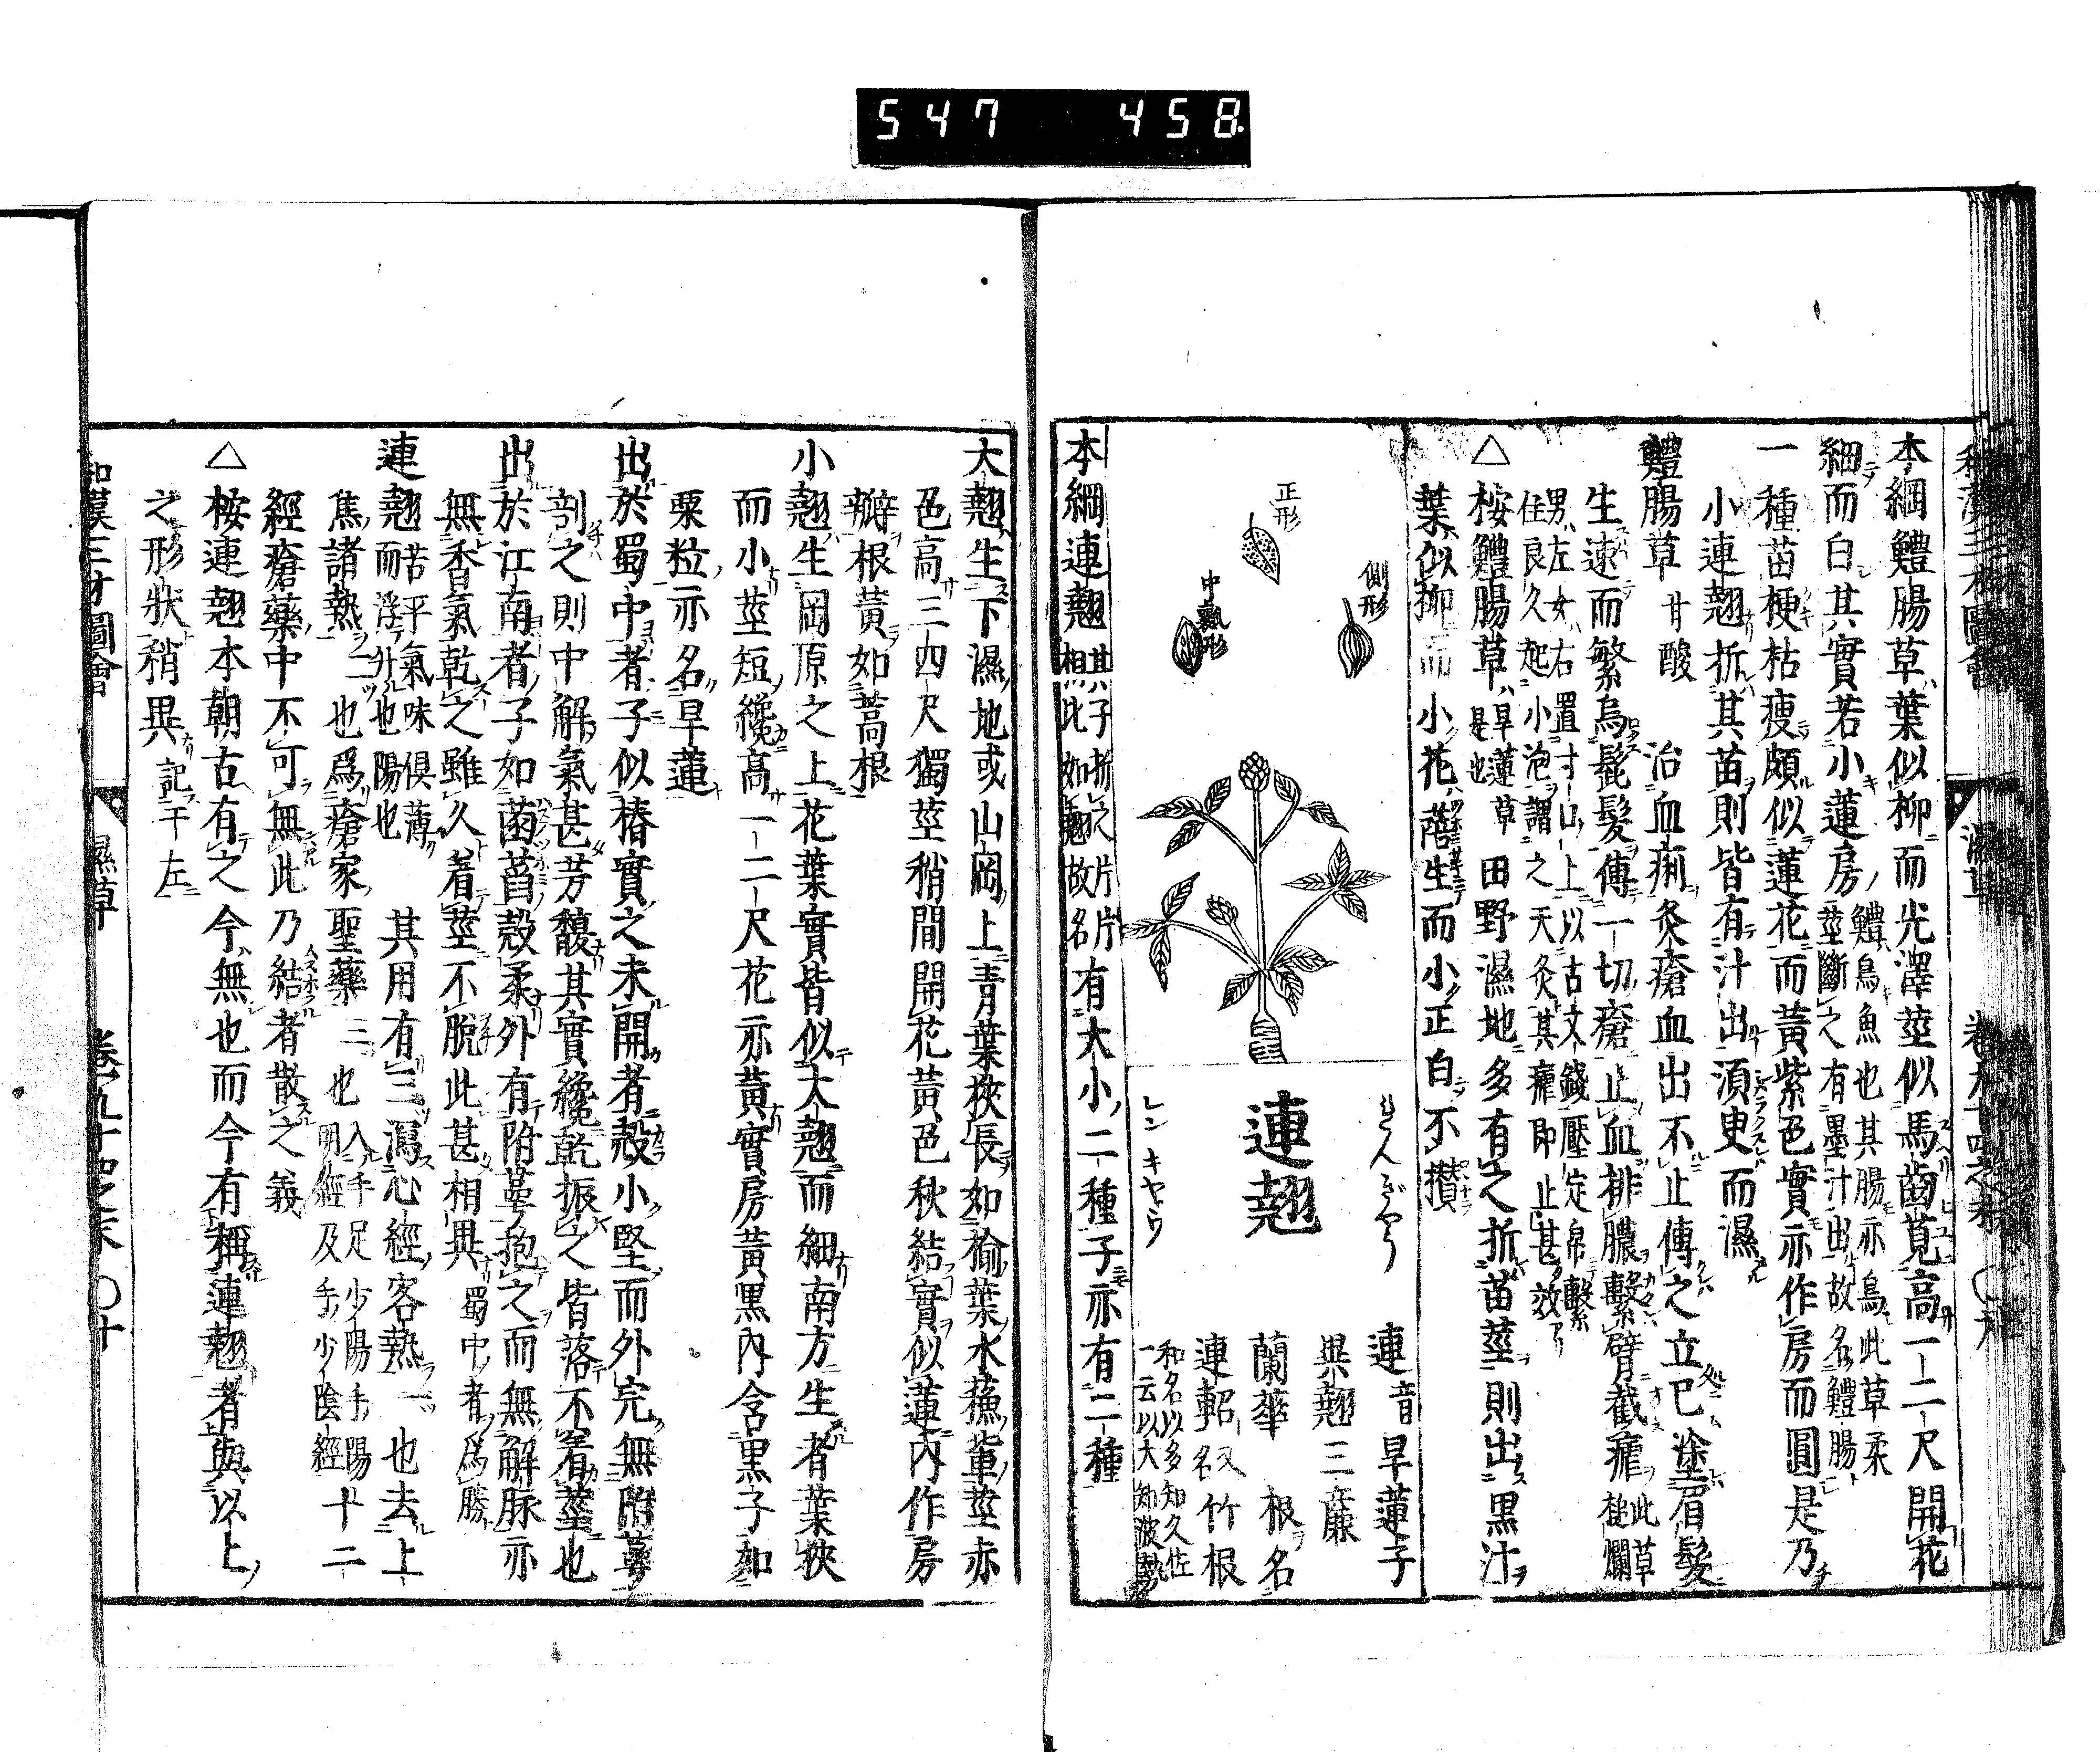 547 458
本綱鱧腸草葉似柳而光澤莖似馬齒莧高一二尺開花
細而白其實若小蓮房 鱧烏魚也其腸亦烏此草柔
莖斷之有墨汁出故名鱧腸
一種苗梗枯瘦頗似蓮花而黃紫色實亦作房而圓是乃
小連翹折其苗則皆有汁出須叟而濕
鱧腸草 甘酸 治血痢灸瘡血出不止傳之立已塗眉髮
生速而繁烏髭髮傳一切瘡止血排膿繫臂截瘧 此草
搥爛
男左女右置寸口上以古文錢壓定帛繫
住良久起小泡謂之天灸其瘧即止甚效
△桉鱧腸草 旱蓮草
是也 田野濕地多有之折苗莖則出黑汁
葉似柳而小花蓓生而小正白不攅
正形
側形
中瓤形
れんぎやう
連翹
レン キヤウ
連音 旱蓮子
異翹 三廉
蘭華 根名
連軺 又名竹根
和名以多知久佐
一云以大知波勢
本綱連翹 其子折之片片
相此如翹故名 有大小二種子亦有二種
大翹生下濕地或山岡上青葉狹長如榆葉水蘓軰莖赤
色高三四尺獨莖稍間開花黃色秋結實似蓮內作房
瓣根黃如蒿根
小翹生岡原之上花葉實皆似大翹而細南方生者葉狹
而小莖短纔高一二尺花亦黃實房黃黑內含黑子如
粟粒亦名旱蓮
出於蜀中者子似椿實之未開者殼小堅而外完無跗萼
剖之則中解氣甚芳馥其實纔乾振之皆落不著莖也
出於江南者子如菡萏殼柔外有跗萼抱之而無解脉亦
無香氣乾之雖久着莖不脫此甚相異 蜀中者爲勝
連翹 苦平氣味俱薄
而浮升也陽也 其用有三瀉心經客熱一也去上
焦諸熱二也爲瘡家聖藥三也 入手足少陽手陽
明經及手少陰經 十二
經瘡藥中不可無此乃結者散之義
△桉連翹本朝古有之今無也而今有稱連翹者與以上
之形狀稍異 記于左
和漢三才圖會 濕草 卷九十四之末 〇十